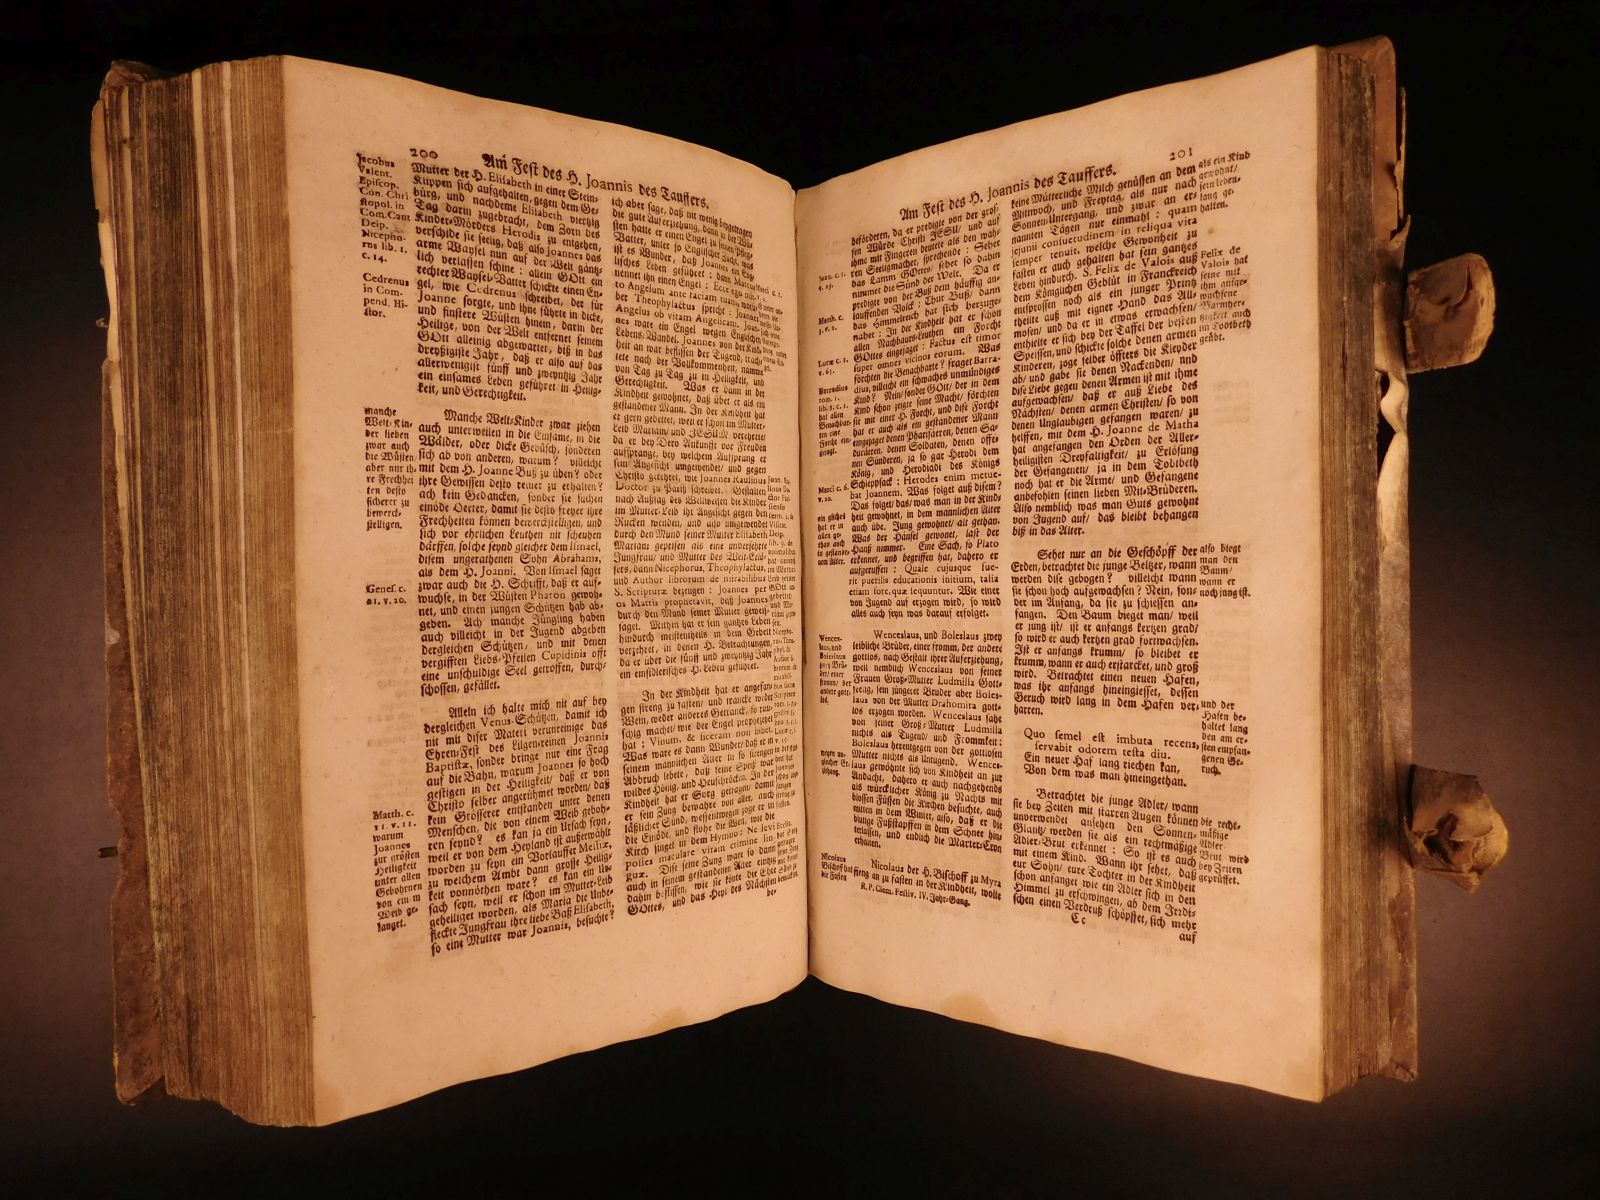 200
Am Fest des H. Joannis des Tauffers.
Jacobus
Valent.
Episcop.
Con. Chri
stopol. in
Com. Cant
Deip.
Nicepho-
rus lib. 1.
c. 14.
Cedrenus
in Com-
pend. Hi-
stor.
manche
Welt-Kin-
der lieben
zwar auch
die Wüsten
aber nur ih-
re Frechhei
ten desto
sicherer zu
bewerck-
stelligen.
Genes. c.
21. v. 20.
Matth. c.
11. v. 11.
warum
Joannes
zur grösten
Heiligkeit
unter allen
Gebohrnen
von ein m
Weib ge-
langet.
Mutter der H. Elisabeth in einer Stein-
Klippen sich aufgehalten, gegen dem Ge-
bürg, und nachdeme Elisabeth viertzig
Tag darin zugebracht, dem Zorn des
Kinder-Mörders Herodis zu entgehen,
verschide sie seelig, daß also Joannes das
arme Waysel nun auf der Welt gäntz-
lich verlassen schine: allein GOtt ein
rechter Waysel-Vatter schickte einen En-
gel, wie Cedrenus schreibet, der für
Joanne sorgte, und ihne führte in dicke,
und finstere Wüsten hinein, darin der
Heilige, von der Welt entfernet seinem
GOtt alleinig abgewartet, biß in das
dreyßigiste Jahr, daß er also auf das
allerwenigist fünff und zweyntzig Jahr
ein einsames Leben geführet in Heilig-
keit, und Gerechtigkeit.
Manche Welt-Kinder zwar ziehen
auch unterweilen in die Einsame, in die
Wälder, oder dicke Gebüsch, sonderen
sich ab von anderen, warum? villeicht
mit dem H. Joanne Buß zu üben? oder
ihre Gewissen desto reiner zu erhalten?
ach kein Gedancken, sonder sie suchen
einöde Oerter, damit sie desto freyer ihre
Frechheiten können bewerckstelligen, und
sich vor ehrlichen Leuthen nit scheuhen
därffen, solche seynd gleicher dem Ismael,
disem ungerathenen Sohn Abrahams,
als dem H. Joanni. Von Ismael saget
zwar auch die H. Schrifft, daß er auf-
wuchse, in der Wüsten Pharon gewoh-
net, und einen jungen Schützen hab ab-
geben. Ach manche Jüngling haben
auch villeicht in der Jugend abgeben
dergleichen Schützen, und mit denen
vergifften Liebs-Pfeilen Cupidinis offt
eine unschuldige Seel getroffen, durch-
schossen, gefället.
Allein ich halte mich nit auf bey
dergleichen Venus-Schützen, damit ich
nit mit diser Materi verunreinige das
Ehren-Fest des Lilgen-reinen Joannis
Baptistæ, sonder bringe nur eine Frag
auf die Bahn, warum Joannes so hoch
gestigen in der Heiligkeit, daß er von
Christo selber angerühmet worden, daß
kein Grösserer entstanden unter denen
Menschen, die von einem Weib gebohr-
ren seynd? es kan ja ein Ursach seyn,
weil er von dem Heyland ist außerwählt
worden zu seyn ein Vorlauffer Messiæ,
zu welchem Ambt dann grosse Heilig-
keit vonnöthen ware? es kan ein Ur-
sach seyn, weil er schon im Mutter-Leib
geheiliget worden, als Maria die Unbe-
fleckte Jungfrau ihre liebe Baß Elisabeth,
so eine Mutter war Joannis, besuchte?
ich aber sage, daß nit wenig beygetragen
die gute Auferziehung, dann in der Wüs
sten hatte er einen Engel zu seinem Pfleg-
Vatter, unter so Englischer Zucht, was
ist es Wunder, daß Joannes ein Eng-
lisches Leben geführet: dann Marcus
nennet ihn einen Engel: Ecce ego mit-
to Angelum ante faciem tuam
ber Theophylactus spricht: Joannes
Angelus ob vitam Angelicam. Joan-
nes ware ein Engel wegen Englischen
Lebens-Wandel. Joannes von der Kind-
heit an war beflissen der Tugend, trach-
tete nach der Vollkommenheit, namme
von Tag zu Tag zu in Heiligkeit, und
Gerechtigkeit. Was er dann in der
Kindheit gewohnet, daß übet er als ein
gestandener Mann. In der Kindheit hat
er gern gebettet, weil er schon im Mutter-
Leib Mariam und JESUM verehrete/
da er bey Dero Ankunft vor Freuden
auffsprange, bey welchem Auffsprung er
sein Angesicht umgewendet/ und gegen
Christo gekehret, wie Joannes Raulinus
Doctor zu Pariß schreibet. Gestalten
nach Aussag des Weltweisen die Kinder
im Mutter-Leib ihr Angesicht gegen den
Rucken wenden, und also umgewendet
durch den Mund seiner Mutter Elisabeth
Mariam geprisen als eine unversehrte
Jungfrau/ und Mutter des Welt-Erlö-
sers, dann Nicephorus, Theophylactus,
und Author librorum de mirabilibus
S. Scripturæ bezeugen: Joannes per
os Matris prophetavit, daß Joannes
durch den Mund seiner Mutter geweis-
saget. Mithin hat er sein gantzes Leben
hindurch meistentheils in dem Gebett
verzehret, in denen H. Betrachtungen,
da er über die fünff und zweyntzig Jahr
ein einsidlerisches H. Leben geführet.
In der Kindheit hat er angefan-
gen streng zu fasten/ und trancke weder
Wein, weder anderes Getranck, so rau-
schig machet/ wie der Engel prophezeyet
hat: Vinum, & siceram non bibet.
Was ware es dann Wunder/ daß er in
seinem männlichen Alter in so strengem
Abbruch lebete, daß seine Speiß war
wildes Hönig, und Heuschröcken. In der
Kindheit hat er Sorg getragen/ damit
er sein Zung bewahre von aller, auch
läßlicher Sünd, wessentwegen zoge er in
die Einöde, und flohe die Welt, wie die
Kirch singet in dem Hymno: Ne levi
posses maculare vitam crimine lin-
guæ. Dise seine Zung ware so dann
auch in seinem gestandenen Alter eintzig
dahin beflissen, wie sie könte die Ehr
GOttes, und das Heyl des Nächsten
be-
201
Am Fest des H. Joannis des Tauffers.
Joan. c. 1.
Matth. c.
3. v. 2.
Luc. c. 1.
v. 65.
Barradius
tom. 1.
lib. 8. c. 1.
hat allen
Benachbar-
ten eine
Forcht ein-
gejagt.
Marci c. 6.
v. 20.
ein gleiches
hat er in
allen ge-
than auch
in gestande-
nem Alter.
Wences-
laus, und
Boleslaus
zwey Brü-
der/ einer
fromm, der
andere gott-
los,
wegen un-
gleicher Er-
ziehung.
Nicolaus
Bischoff hat
die Fasten
beförderen, da er predigte von der gros-
sen Würde Christi JESU/ und auf
ihme mit Fingeren deutete als den wah-
ren Seeligmacher, sprechende: Sehet
das Lamm GOttes/ sehet so dahin
nimmet die Sünd der Welt. Da er
predigte von der Buß dem häuffig an-
lauffenden Volck: Thut Buß/ dann
das Himmelreich hat sich herzuge-
nahet: In der Kindheit hat er schon
allen Nachbaurs-Leuthen ein Forcht
GOttes eingejaget: Factus est timor
super omnes vicinos eorum. Was
förchten die Benachbarte? fraget Barra-
dius, villeicht ein schwaches unmündiges
Kind? Nein/ sonder GOtt/ der in dem
Kind schon zeigte seine Macht/ förchten
sie mit einer H. Forcht, und dise Forcht
hat er auch als ein gestandener Mann
eingejaget denen Pharisæeren, denen Sa-
ducæeren, denen Soldaten, denen offe-
nen Sünderen, ja so gar Herodi dem
König, und Herodiadi des Königs
Schleppsack: Herodes enim metue-
bat Joannem. Was folget auß disem?
Das folget/ das/ was man in der Kinds
heit gewohnet, in dem mannlichen Alter
auch übe. Jung gewohnet/ alt gethan.
Was der Hänsel gewonet, last der
Hanß nimmer. Eine Sach, so Plato
erkennet, und begriffen hat, dahero er
aufgeruffen: Quale cujusque fue-
rit puerilis educationis initium, talia
etiam fore, quæ sequuntur. Wie einer
von Jugend auf erzogen wird, so wird
alles auch seyn was darauf erfolget.
Wenceslaus, und Boleslaus zwey
leibliche Brüder, einer fromm, der andere
gottlos, nach Gestalt ihrer Auferziehung,
weil nemblich Wenceslaus von seiner
Frauen Groß-Mutter Ludmilla Gott-
seelig, sein jüngerer Bruder aber Boles-
laus von der Mutter Drahomira gott-
los erzogen worden. Wenceslaus sahe
von seiner Groß-Mutter Ludmilla
nichts als Tugend/ und Frommkeit:
Boleslaus herentgegen von der gottlosen
Mutter nichts als Untugend. Wences-
laus gewöhnte sich von Kindheit an zur
Andacht, dahero er auch nachgehends
als würcklicher König zu Nachts mit
blossen Füssen die Kirchen besuchte, auch
mitten in dem Winter, also, daß er die
blutige Fußstapffen in dem Schnee hin-
terlassen, und endlich die Marter-Cron
erhalten.
Nicolaus der H. Bischoff zu Myra
fieng an zu fasten in der Kindheit, wolte
R. P. Clem. Festiv. IV. Jahr-Gang.
keine Mütterliche Milch genüssen an dem
Mittwoch, und Freytag, als nur nach
Sonnen-Untergang, und zwar an er-
nannten Tägen nur einmahl: quam
jejunii consuetudinem in reliqua vita
semper tenuit, welche Gewonheit zu
fasten er auch gehalten hat sein gantzes
Leben hindurch. S. Felix de Valois auß
dem Königlichen Geblüt in Franckreich
entsprossen noch als ein junger Printz
theilte auß mit eigner Hand das All-
mosen/ und da er in etwas erwachsen/
enthielte er sich bey der Taffel der besten
Speissen, und schickte solche denen armen
Kinderen, zoge selber öffters die Kleyder
ab/ und gabe sie denen Nackenden/ und
dise Liebe gegen denen Armen ist mit ihme
aufgewachsen/ daß er auß Liebe des
Nächsten/ denen armen Christen/ so von
den Unglaubigen gefangen waren/ zu
helffen, mit dem H. Joanne de Matha
hat angefangen den Orden der Aller-
heiligisten Dreyfaltigkeit/ zu Erlösung
der Gefangenen/ ja in dem Todtbeth
noch hat er die Arme/ und Gefangene
anbefohlen seinen lieben Mit-Brüderen.
Also nemblich was man Guts gewohnt
von Jugend auf/ das bleibt behangen
biß in das Alter.
Sehet nur an die Geschöpff der
Erden, betrachtet die junge Beltzer, wann
werden dise gebogen? villeicht wann
sie schon hoch aufgewachsen? Nein, son-
der im Anfang, da sie zu schiessen an-
fangen. Den Baum bieget man/ weil
er jung ist/ ist er anfangs kertzen grad/
so wird er auch kertzen grad fortwachsen.
Ist er anfangs krumm/ so bleibet er
krumm, wann er auch erstarcket, und groß
wird. Betrachtet einen neuen Hafen,
was ihr anfangs hineingiesset, dessen
Geruch wird lang in dem Hafen ver-
harren.
Quo semel est imbuta recens,
servabit odorem testa diu.
Ein neuer Haf lang riechen kan,
Von dem was man hineingethan.
Betrachtet die junge Adler/ wann
sie bey Zeiten mit starren Augen können
unverwendet ansehen den Sonnen-
Glantz/ werden sie als ein rechtmäßige
Adler-Brut erkennet: So ist es auch
mit einem Kind. Wann ihr sehet, daß
eur Sohn/ eure Tochter in der Kindheit
schon anfanget wie ein Adler sich in den
Himmel zu erschwingen, ab dem Irrdi-
schen einen Verdruß schöpffet, sich mehr
Cc
auf
als ein Kind
gewohnt/
sein leben-
lang ge-
halten.
Felix de
Valois hat
seine mit
ihm aufge-
wachsene
Barmher-
tzigkeit auch
im Todtbeth
geübt.
also biegt
man den
Baum/
wann er
noch jung ist.
und der
Hafen be-
haltet lang
den am er-
sten empfan-
genen Ge-
ruch.
die recht-
mäßige
Adler-
Brut wird
bey Zeiten
geprüffet.